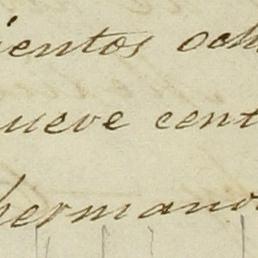 ientos och
nueve cent
hermano